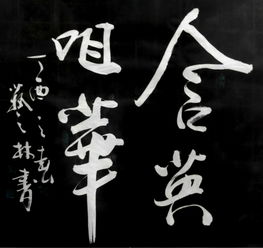 含英
咀華
丁酉之春
藝之林書